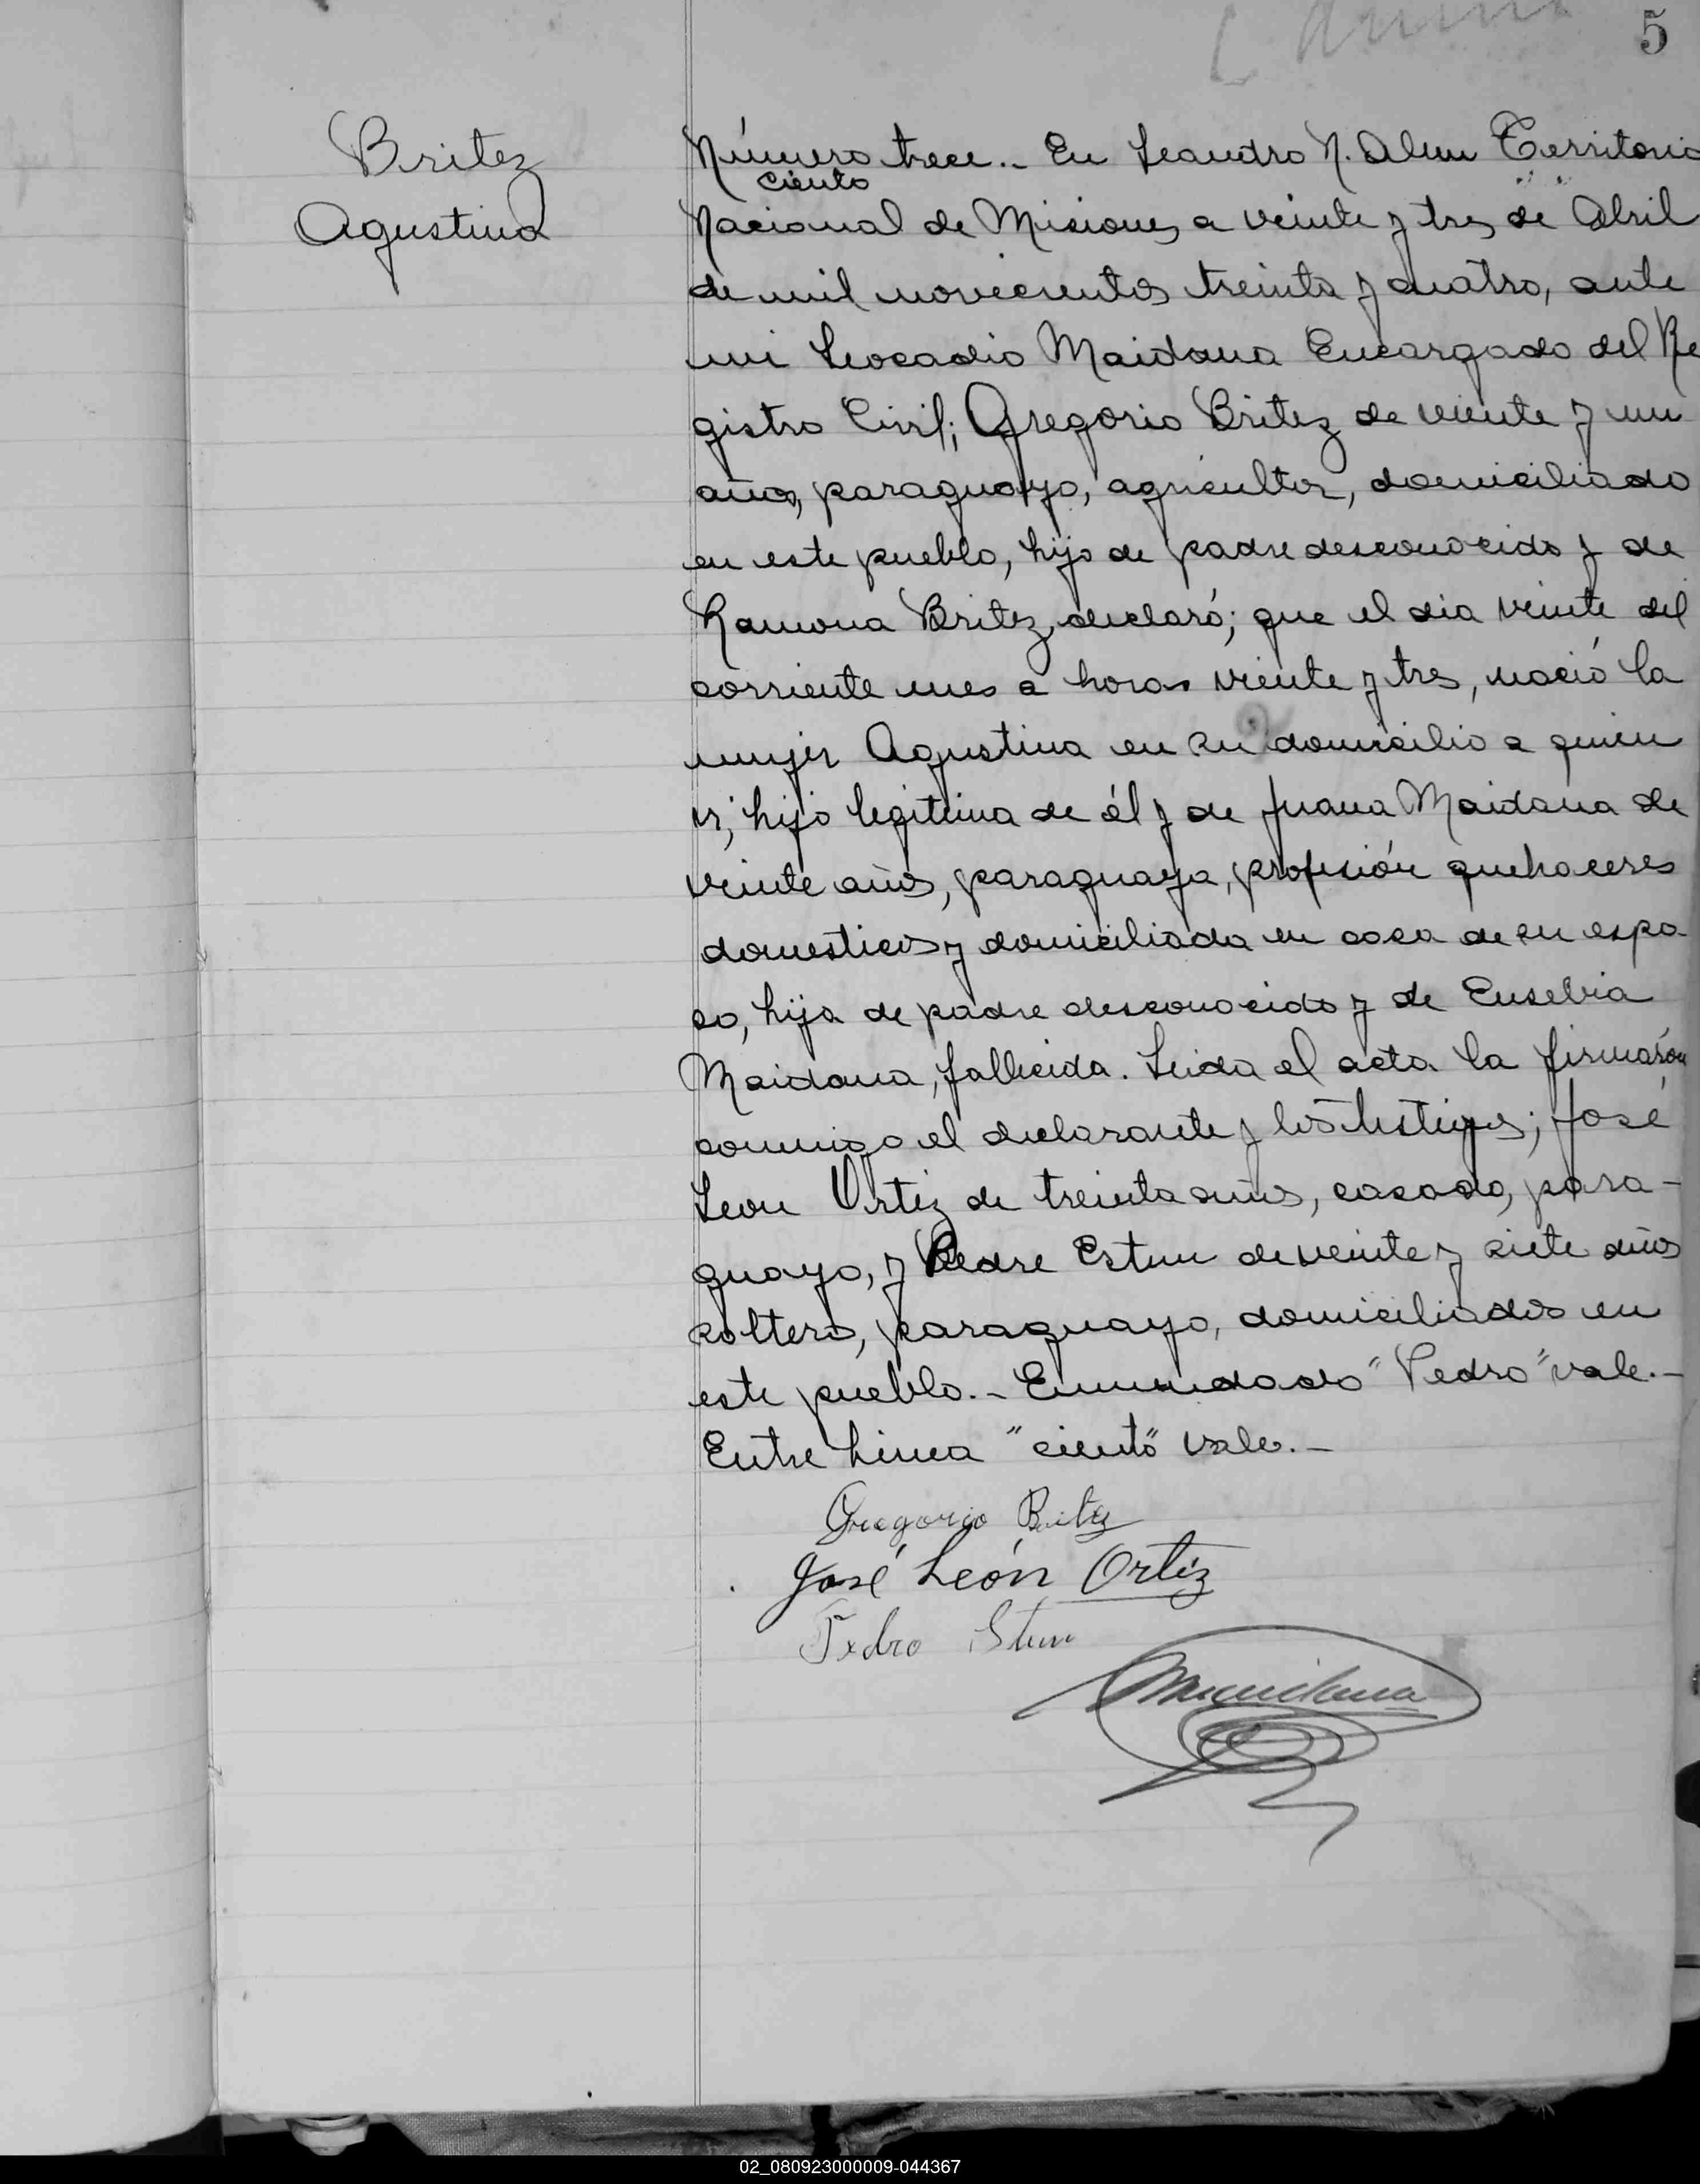 5
Britez
Agustina
Número trece.- En Leandro N. Alem Territorio
ciento
Nacional de Misiones a veinte y tres de Abril
de mil novecientos treinta y cuatro, ante
mi Leocadio Maidana Encargado del Re
gistro Civil; Gregorio Britez de viente y un
años, paraguayo, agricultor, domiciliado
en este pueblo, hijo de padre desconocido y de
Ramona Britez, declaró; que el dia veinte del
corriente mes a horas viente y tres, nació la
mujer Agustina en su domicilio a quien
vi, hijo legitima de él y de Juana Maidana de
veinte años, paraguaya, profesión quehaceres
domesticos y domiciliada en casa de su espo
so, hija de padre desconocido y de Eusebia
Maidana, fallecida. Leida el acta la firmarón
conmigo el declarante y los testigos; José
Leon Ortiz de treinta años, casado, para-
guayo, y Pedre Estun de veinte y siete años
soltero, paraguayo, domiciliados en
este pueblo.- Enmendado "Pedro" vale.-
Entre linea "ciento" vale.-
Gregorio Britez
José León Ortiz
Pedro Stun
Maidana
02_080923000009-044367